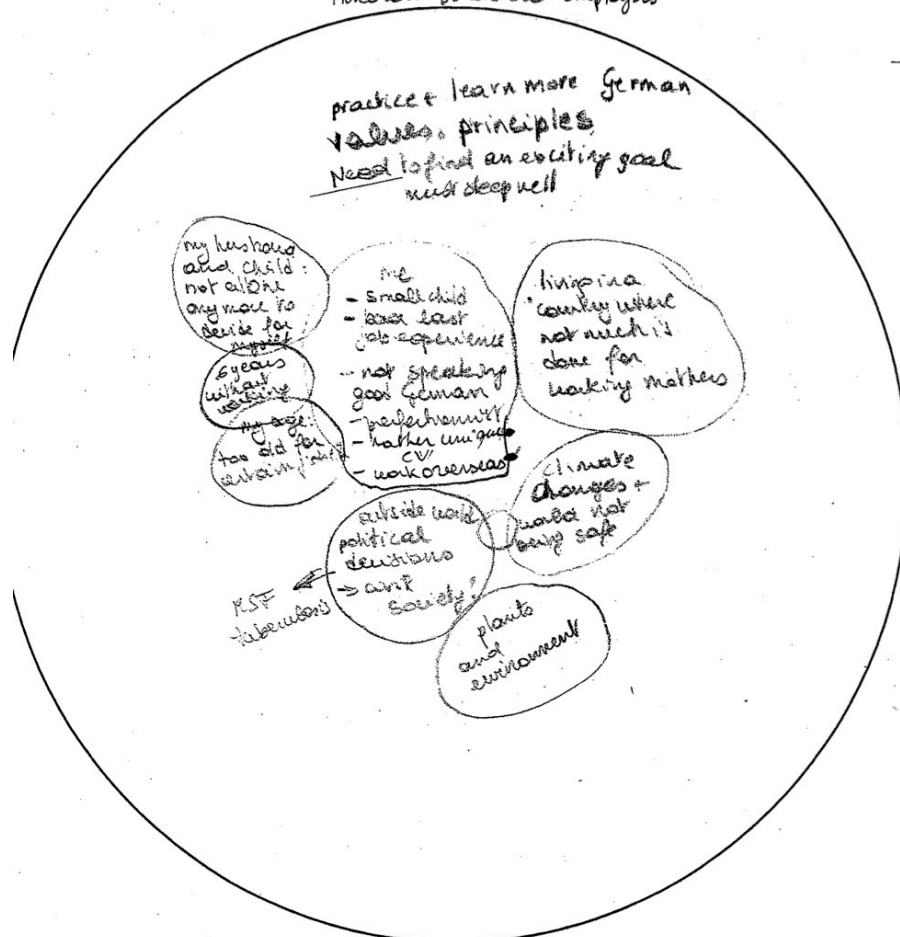 employers
practice + learn more German
values, principles
Need to find an exciting goal
my husband
and child:
not alone
any more to
decide for
myself
6 years
without
working
my age:
too old for
certain
me
- small child
- last
job experience
- not speaking
good German
- perfectionist
- rather unique
CV
- work overseas
living in a
country where
not much is
done for
working mothers
climate
changes +
world not
being safe
outside world
political
decisions
→
society?
MSF
tuberculosis
plants
and
environment